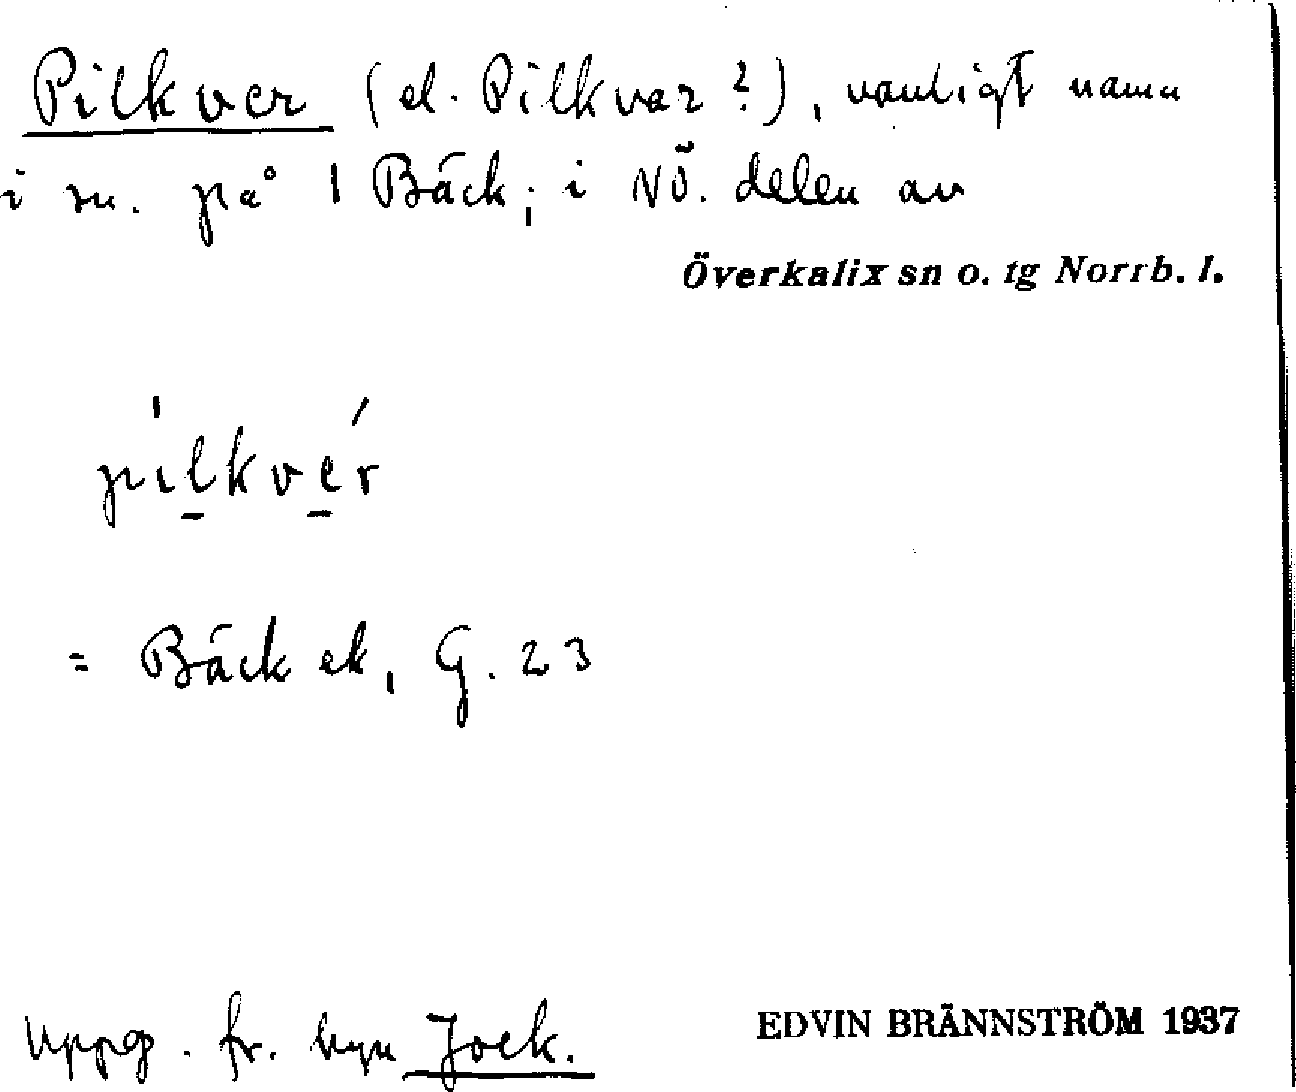 Pilkver (el. Pilkvar?), vanligt namn
i sn. på 1 Bäck; i NÖ. delen av
Överkalix sn o. tg Norrb. l.
pilkvér
= Bäck ek, G. 23
Uppg. fr. byn Jock.
EDVIN BRÄNNSTRÖM 1937